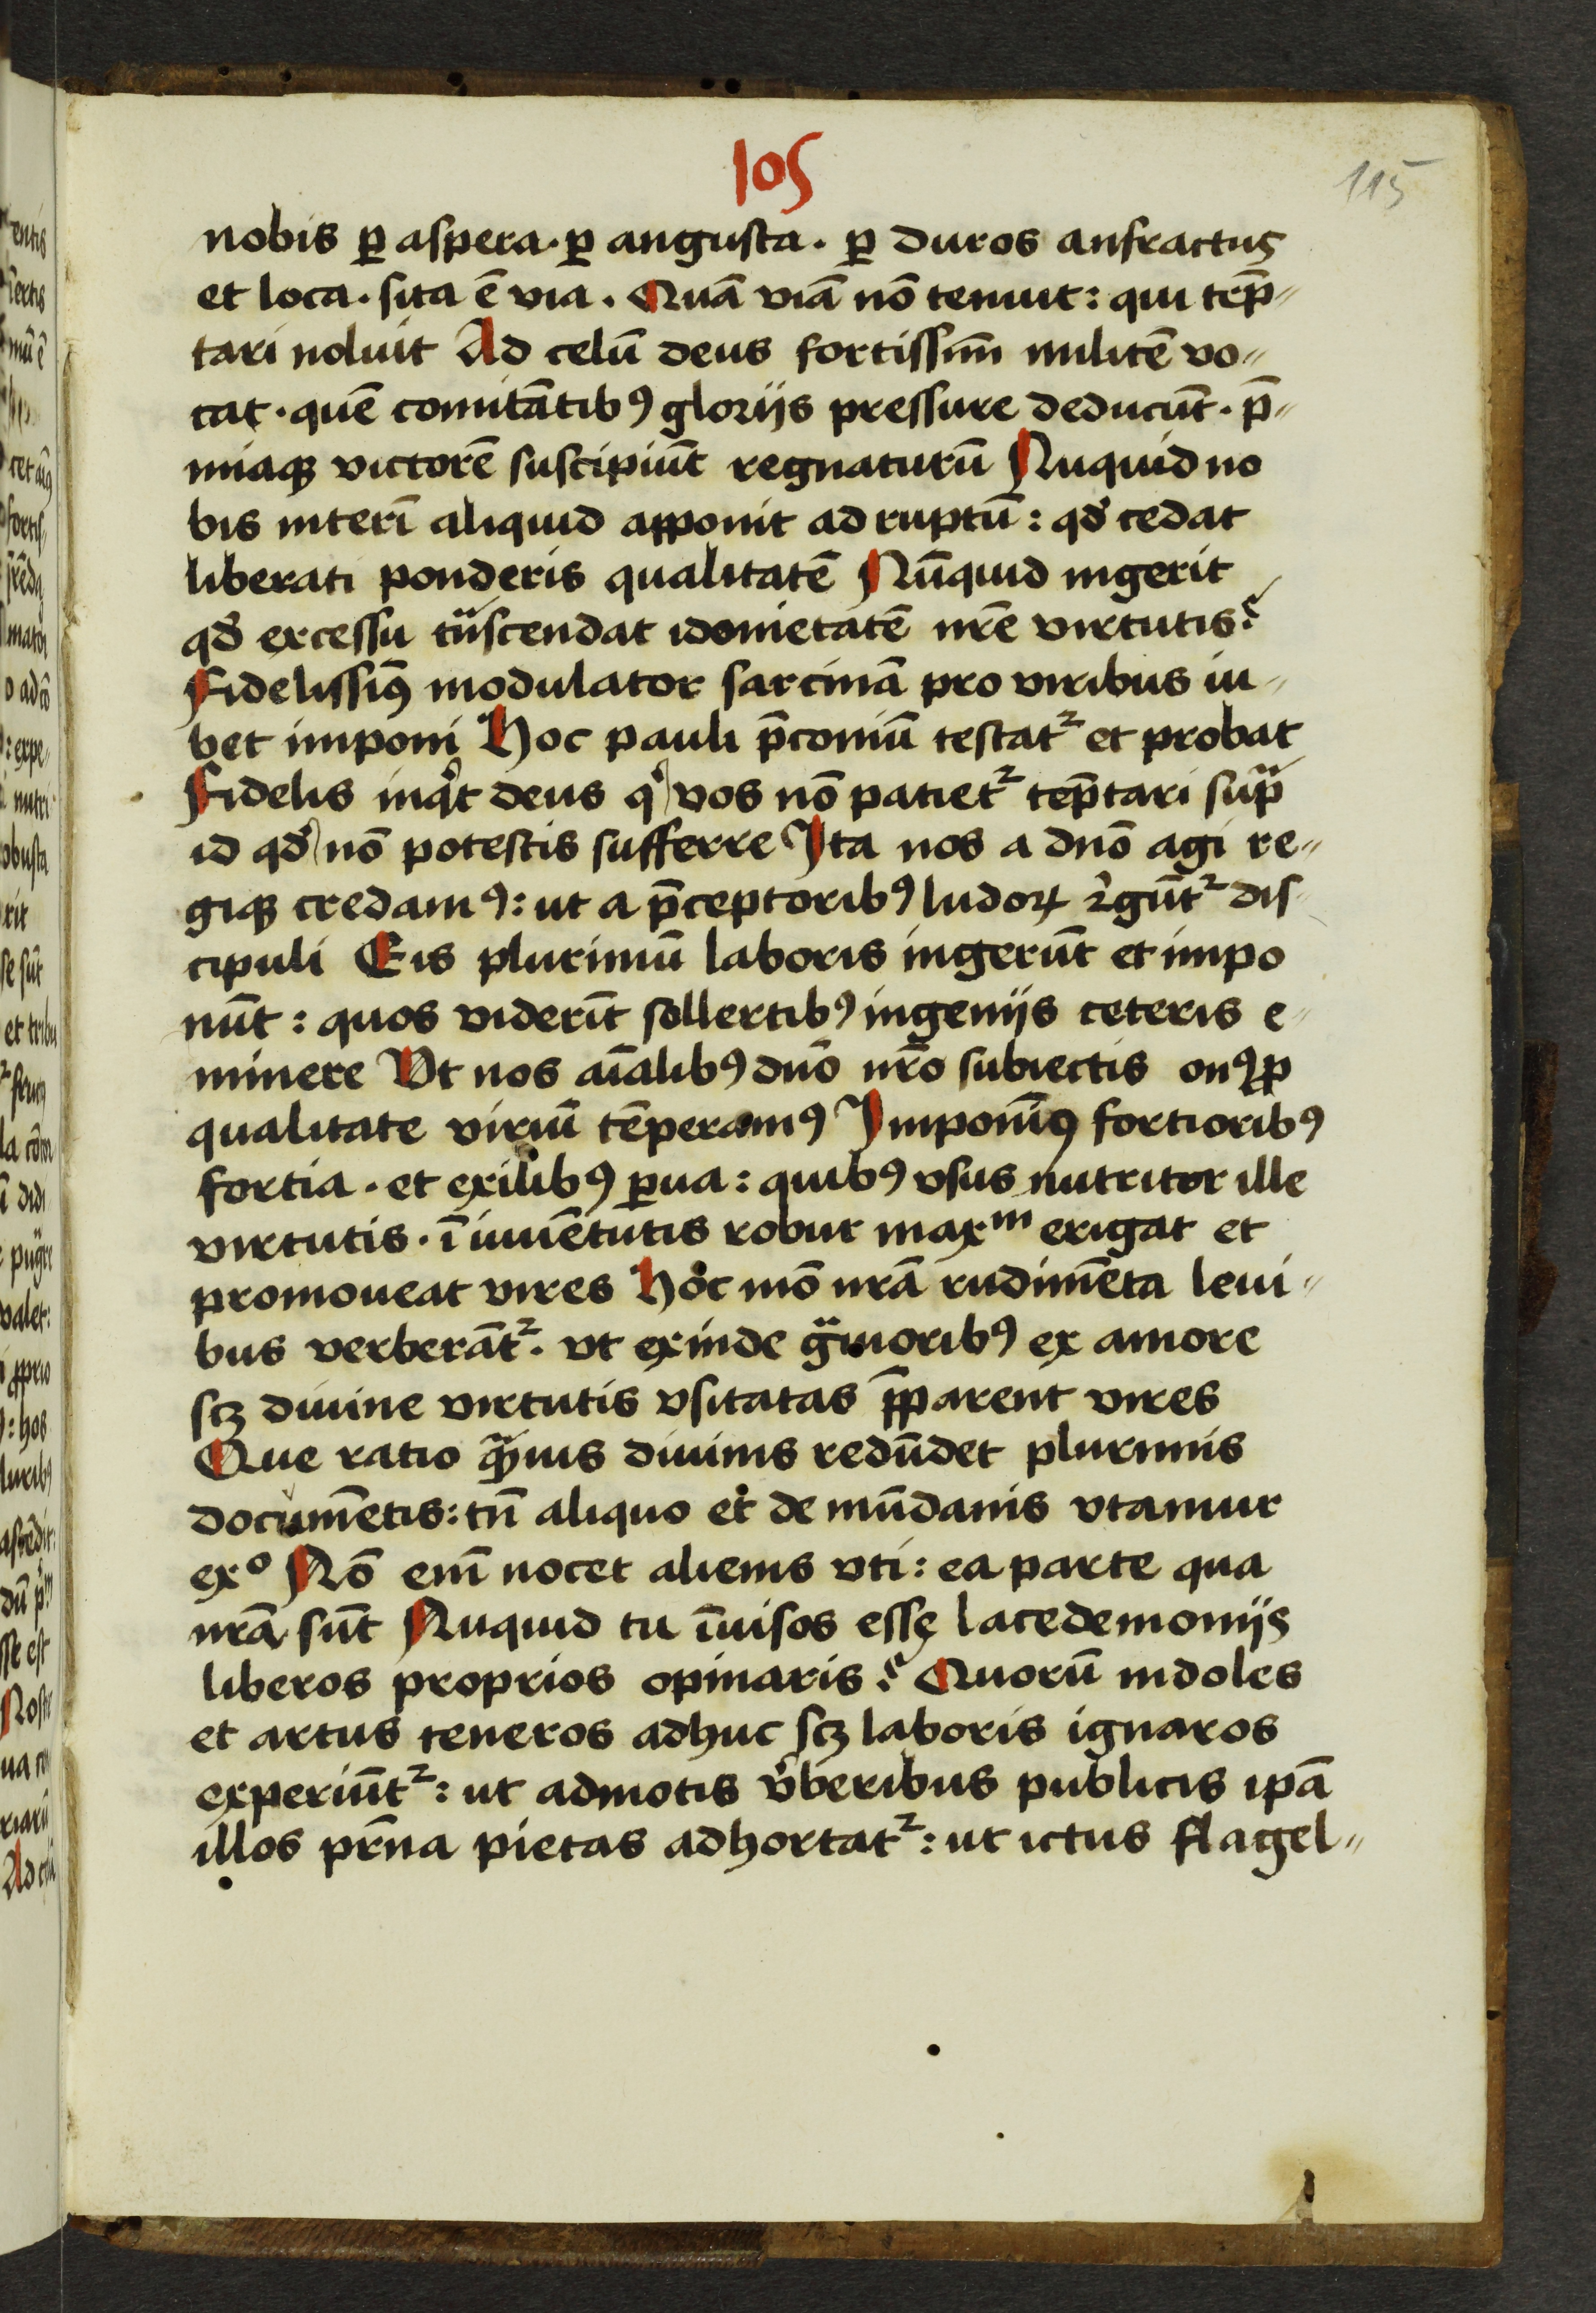 105
115
nobis ꝑ aspera · ꝑ angusta · ꝑ duros anfractus
et loca · sita ē via · Quā viā nō tenuit : qui tēp̄〃
tari noluit Ad celū deus fortissim̄ militē vo〃
cat · quē comitātibꝰ glorijs pressure deducūt · p̄〃
miaqꝫ victorē suscipiūt regnaturū Nuquid no
bis interī aliquid apponit ad ruptū : qđ cedat
liberati ponderis qualitatē Nūquid ingerit
qđ excessu tͣscendat idonietatē nr̄e virtutis?
Fidelissiꝰ modulator sarcinā pro viribus iu〃
bet imponi Hoc pauli p̄coniū testat᷑ et probat
Fidelis inqͥt deus qͥ vos nō patiet᷑ tēp̄tari supͣ
id qđ nō potestis sufferre Ita nos a dnō agi re〃
giqꝫ credamꝰ : ut a p̄ceptoribꝰ ludoꝝ rͥgūt᷑ dis〃
cipuli Eis plurimū laboris ingerūt et impo
nūt : quos viderīt sollertibꝰ ingenijs ceteris e〃
minere Vt nos aīalibꝰ dnō nr̄o subiectis onꝰ ꝓ
qualitate viriū tēperamꝰ Imponīꝰ fortioribꝰ
fortia · et exilibꝰ ꝑua : quibꝰ vsus nutritor ille
virtutis · ī iuuētutis robur maxᵐ erigat et
promoueat vires Hoc mō nrā rudimēta leui〃
bus verberāt᷑ · vt exinde gͣuioribꝰ ex amore
scꝫ diuine virtutis vsitatas p̄parent vires
Que ratio qͣuis diuinis redūdet plurimis
documētis : tn̄ aliquo et de mūdanis vtamur
exᵒ Nō eni̅ nocet alienis vti : ea parte qua
nrā sūt Nuquid tu īuisos esse lacedemonijs
liberos proprios opinaris? Quorū indoles
et artus teneros adhuc scꝫ laboris ignaros
experiūt᷑ : ut admotis v̓beribus publicis ipā
illos pr̄na pietas adhortat᷑ : ut ictus flagel〃